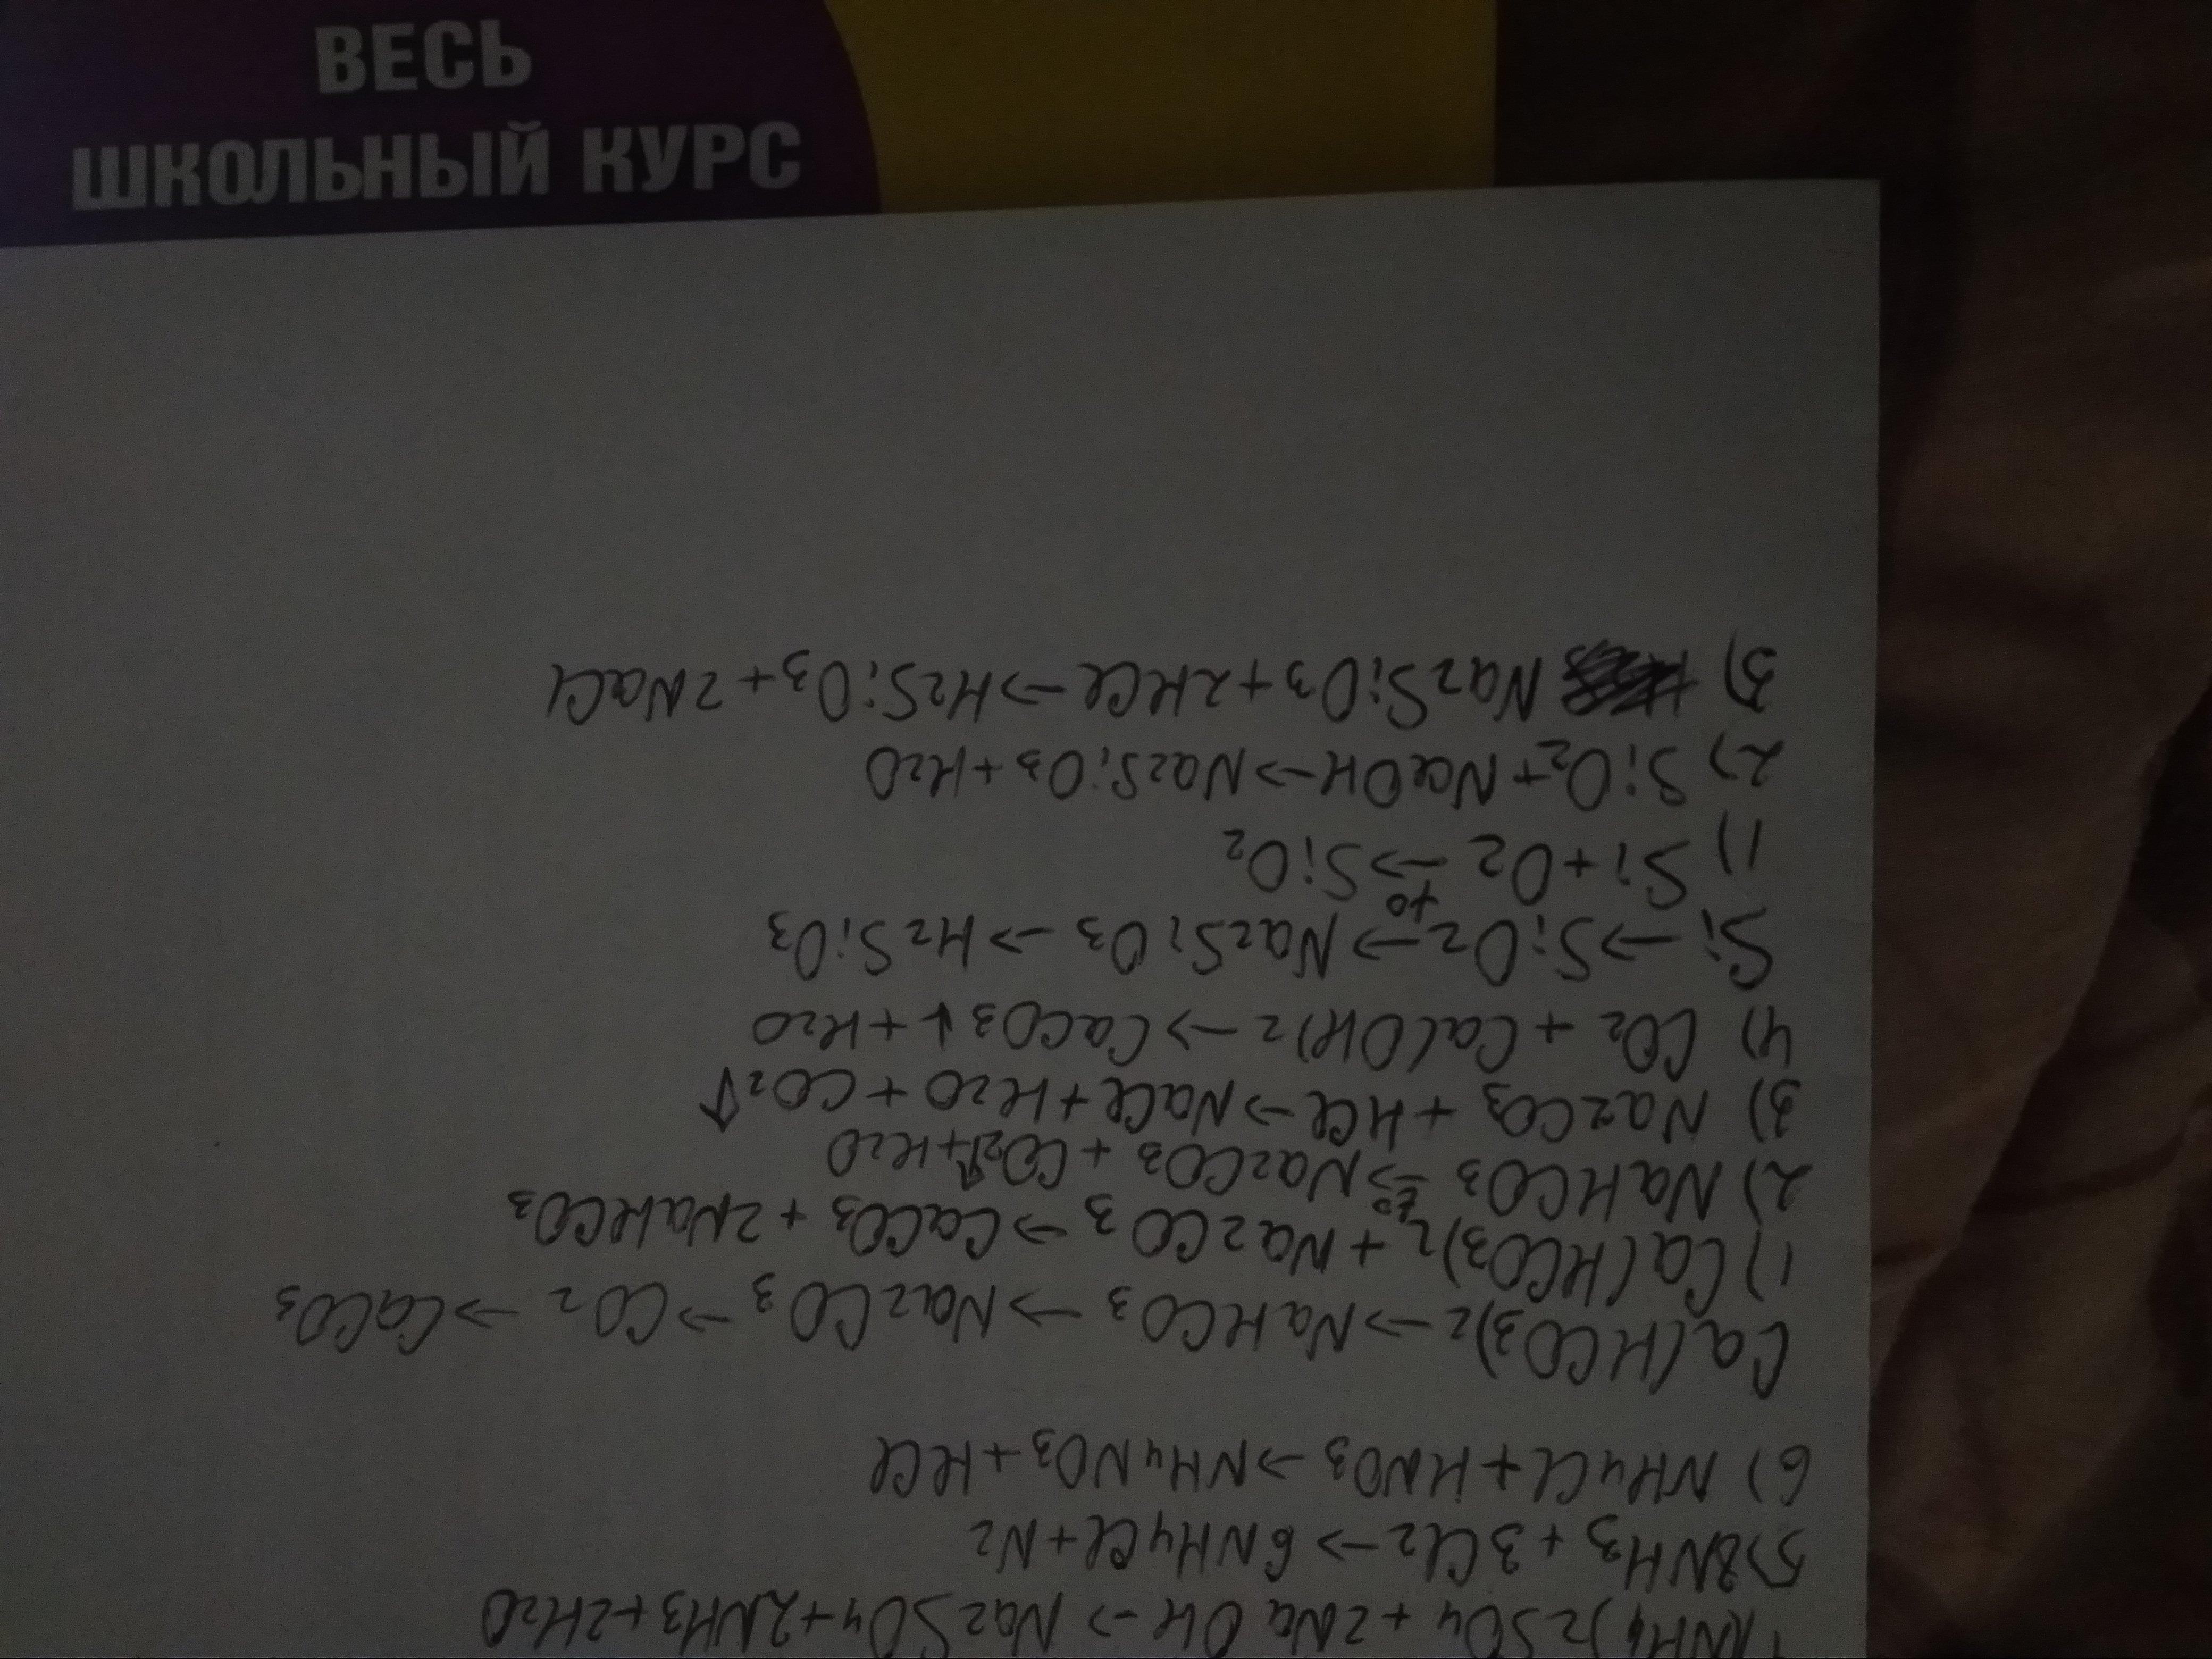 ВЕСЬ
ШКОЛЬНЫЙ КУРС
(NH4)2SO4 + 2NaOH → Na2SO4 + 2NH3 + 2H2O
5) 8NH3 + 3Cl2 → 6NH4Cl + N2
6) NH4Cl + HNO3 → NH4NO3 + HCl
Ca(HCO3)2 → NaHCO3 → Na2CO3 → CO2 → CaCO3
1) Ca(HCO3)2 + Na2CO3 → CaCO3 + 2NaHCO3
2) NaHCO3 t°→ Na2CO3 + CO2↑ + H2O
3) Na2CO3 + HCl → NaCl + H2O + CO2↑
4) CO2 + Ca(OH)2 → CaCO3↓ + H2O
Si → SiO2 → Na2SiO3 → H2SiO3
1) Si + O2 t°→ SiO2
2) SiO2 + NaOH → Na2SiO3 + H2O
3) Na2SiO3 + 2HCl → H2SiO3 + 2NaCl